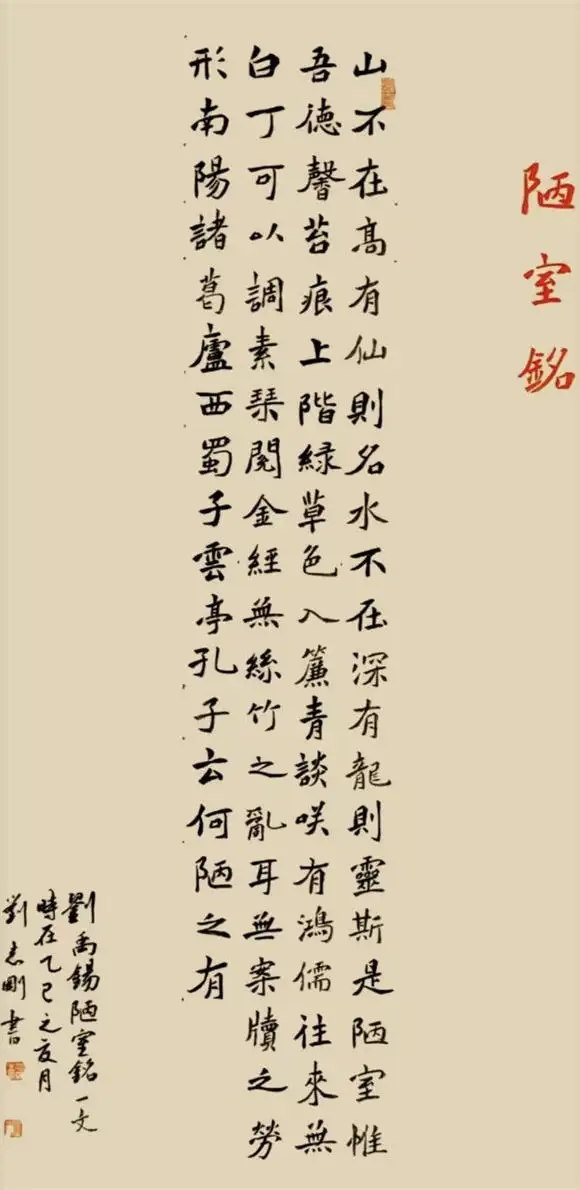 陋室銘
山不在髙有仙則名水不在深有龍則靈斯是陋室惟
吾德馨苔痕上階緑草色入簾青談咲有鴻儒往來無
白丁可以調素琴閱金經無絲竹之亂耳無案牘之勞
形南陽諸葛廬西蜀子雲亭孔子云何陋之有
劉禹錫陋室銘一文
時在乙巳之夏月
劉志剛書